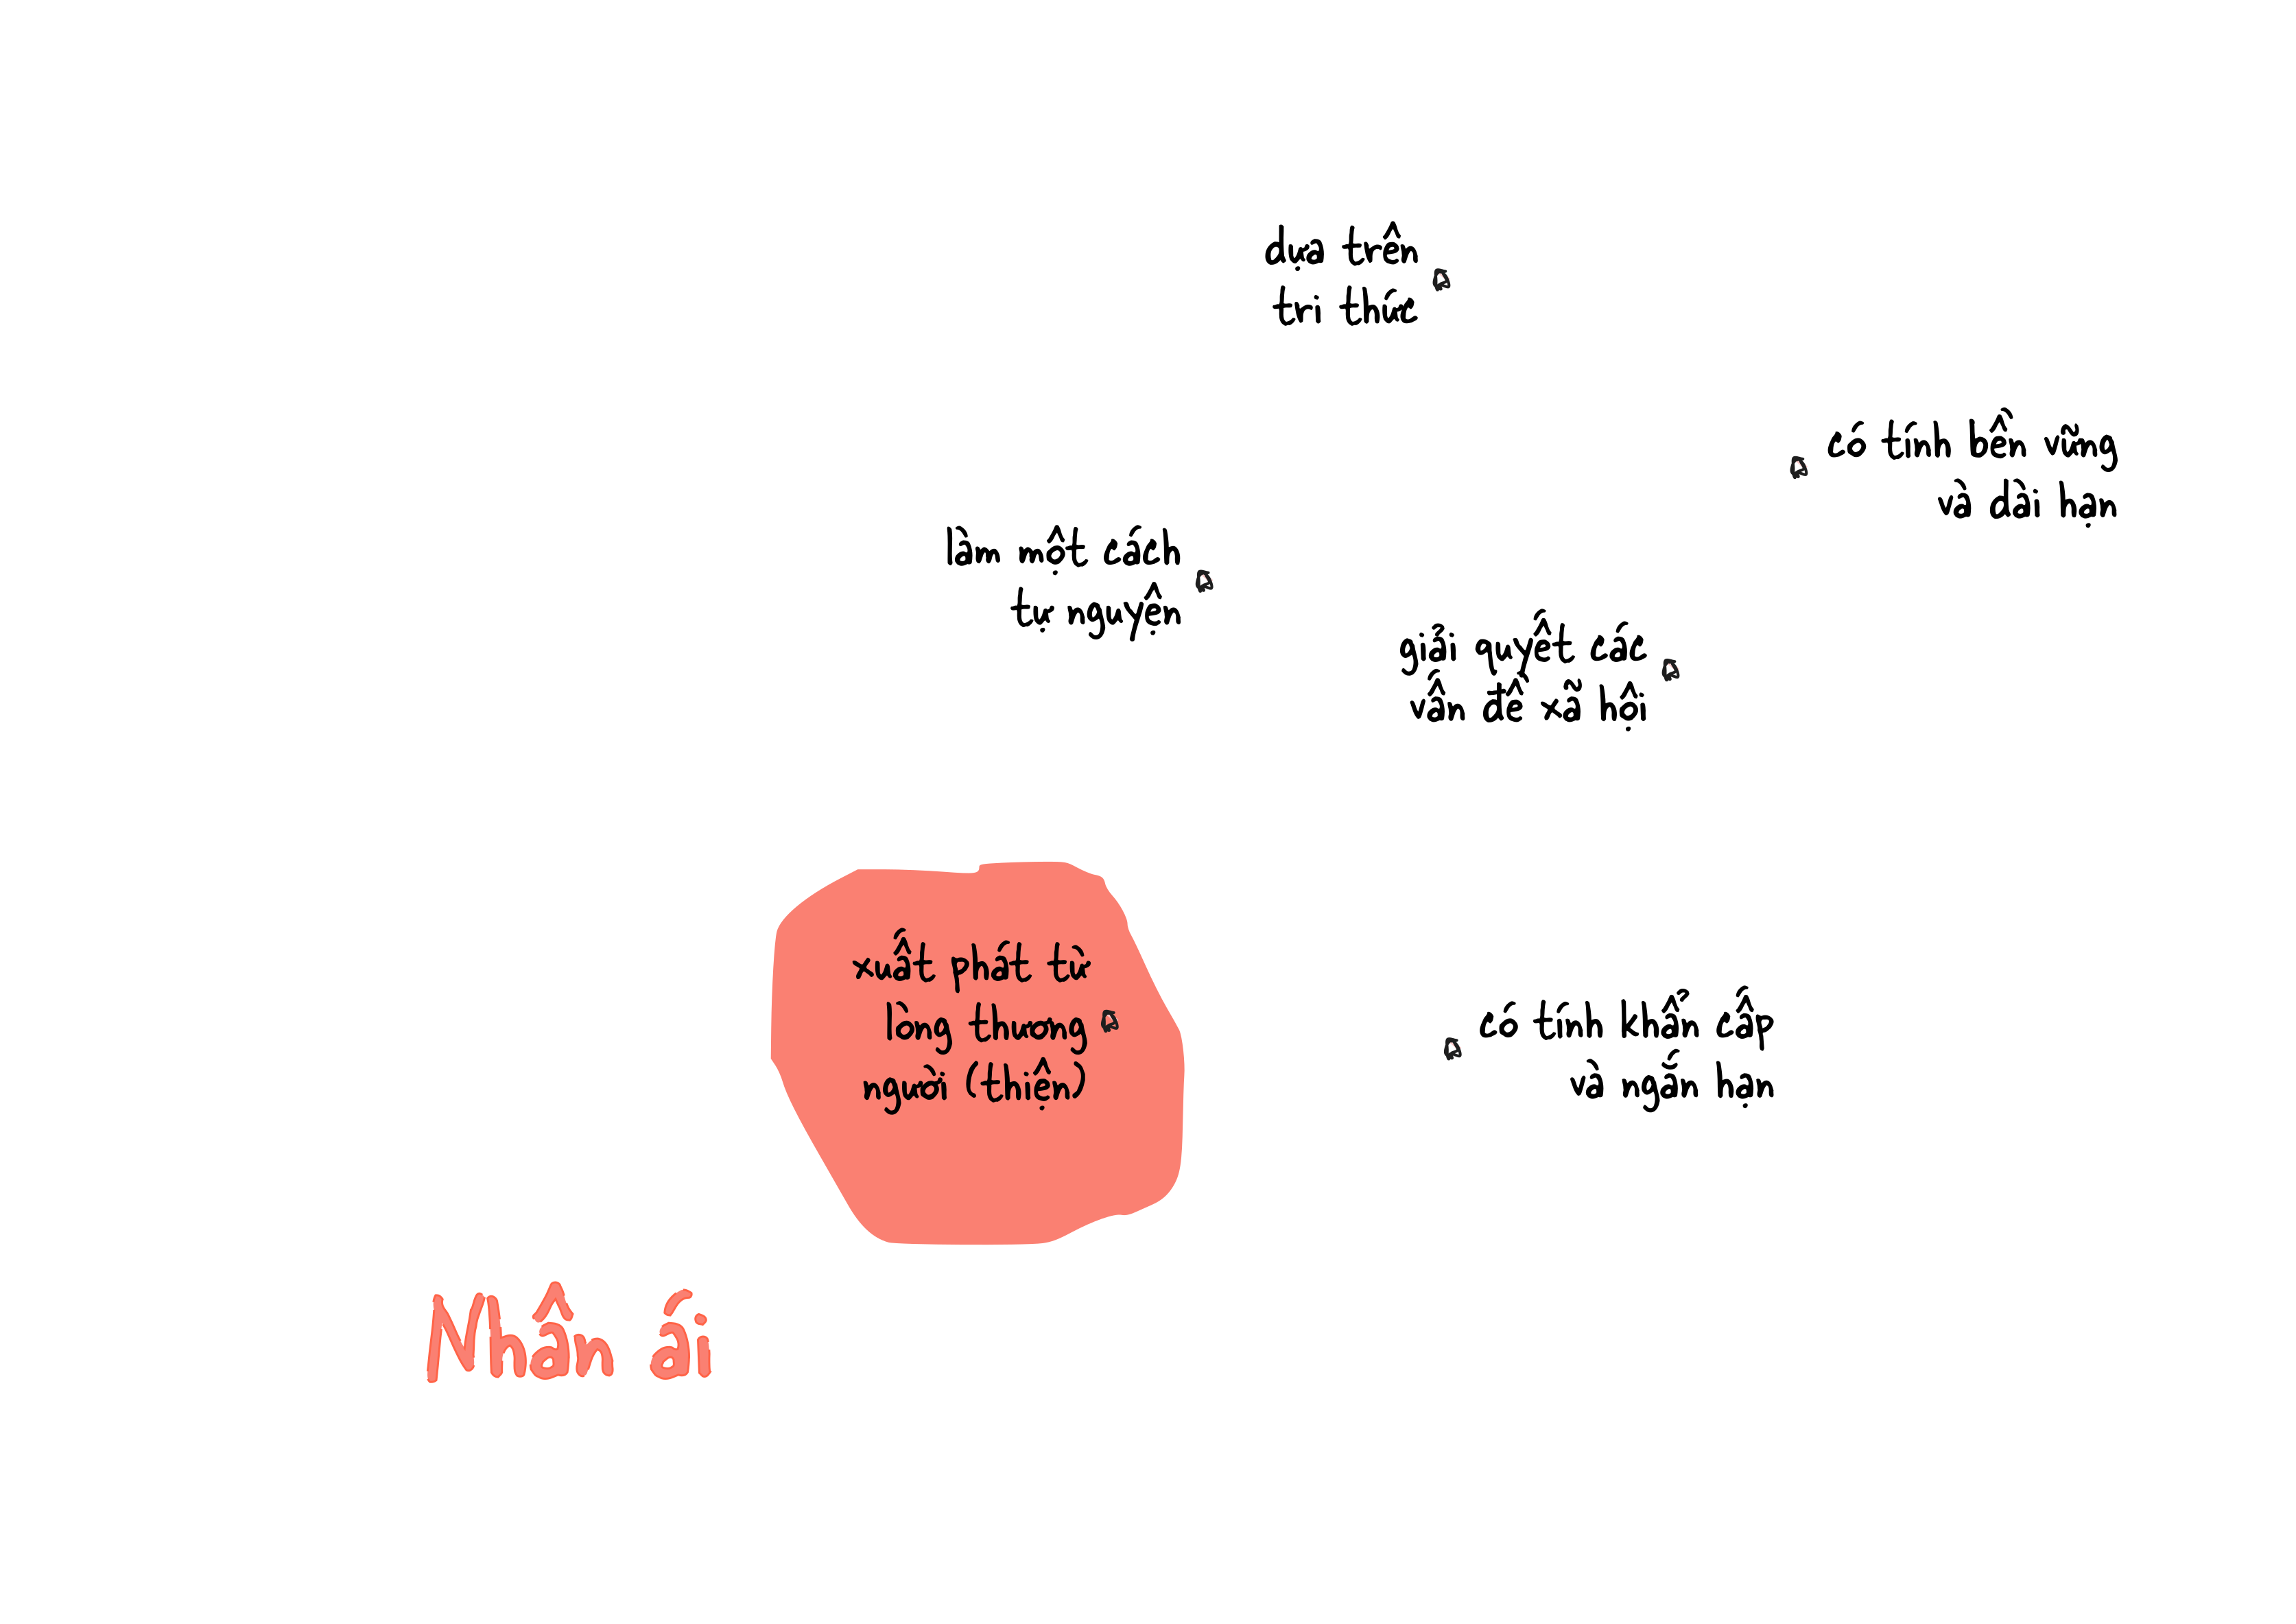 dựa trên
tri thức
có tính bền vững
và dài hạn
làm một cách
tự nguyện
giải quyết các
vấn đề xã hội
xuất phát từ
lòng thương
người (thiện)
có tính khẩn cấp
và ngắn hạn
Nhân ái